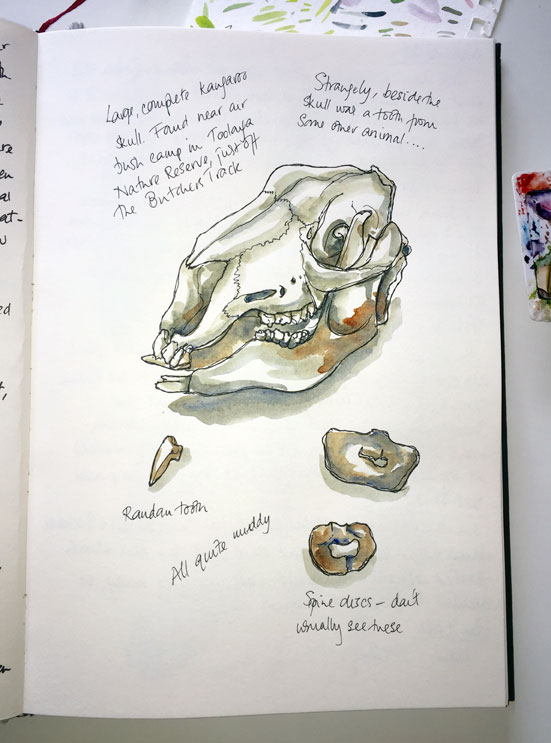 Large, complete kangaroo
skull. Found near our
bush camp in Toolara
Nature Reserve, just off
The Butchers Track
Strangely, beside the
skull was a tooth from
some other animal....
Random tooth
All quite muddy
Spine discs – don't
usually see these